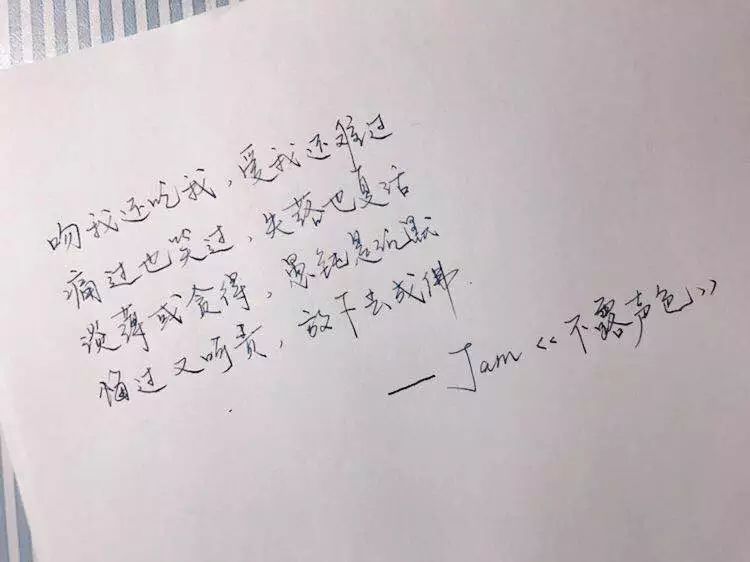 吻我还吃我，爱我还难过
痛过也笑过，失落也复活
淡薄或贪得，愚钝是沉默
悔过又呵责，放下去成佛.
— Jam《不露声色》